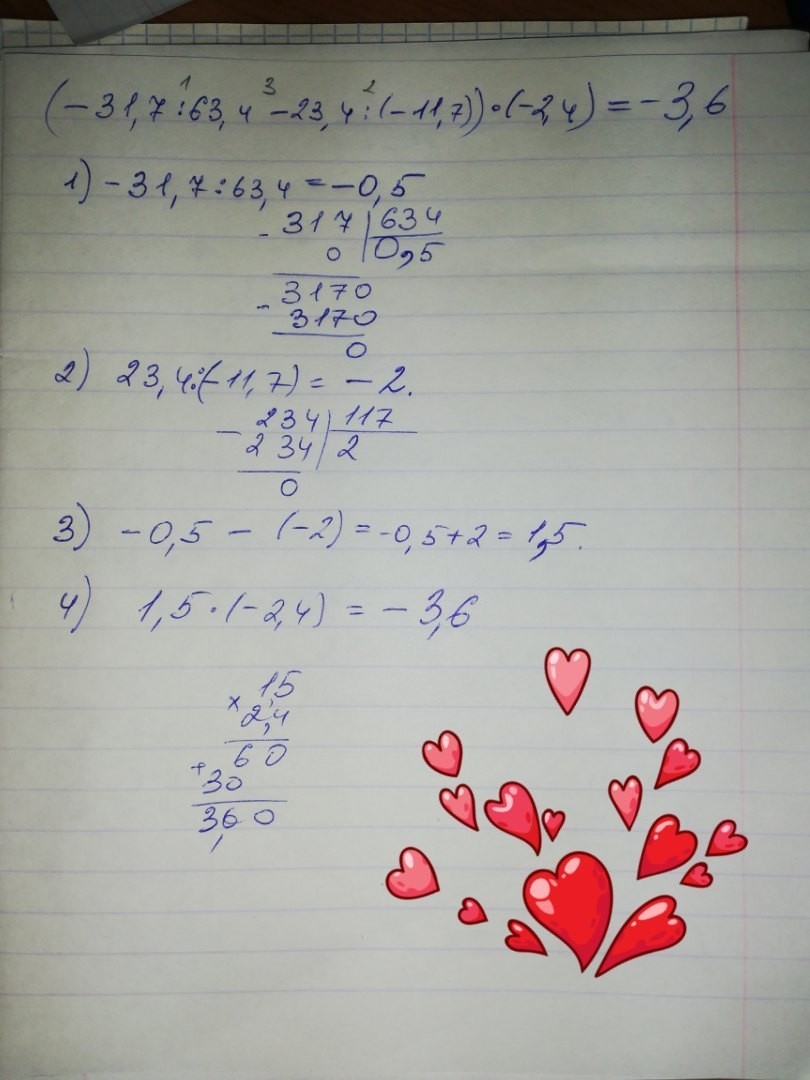 1 3 2
(-31,7:63,4-23,4:(-11,7))·(-2,4)=-3,6
1) -31,7:63,4=-0,5
- 317 | 634
0 | 0,5
3170
- 3170
0
2) 23,4:(-11,7)= -2.
- 234 | 117
234 | 2
0
3) -0,5 - (-2)=-0,5+2=1,5.
4) 1,5·(-2,4) = -3,6
1,5
× 2,4
60
+ 30
3,60